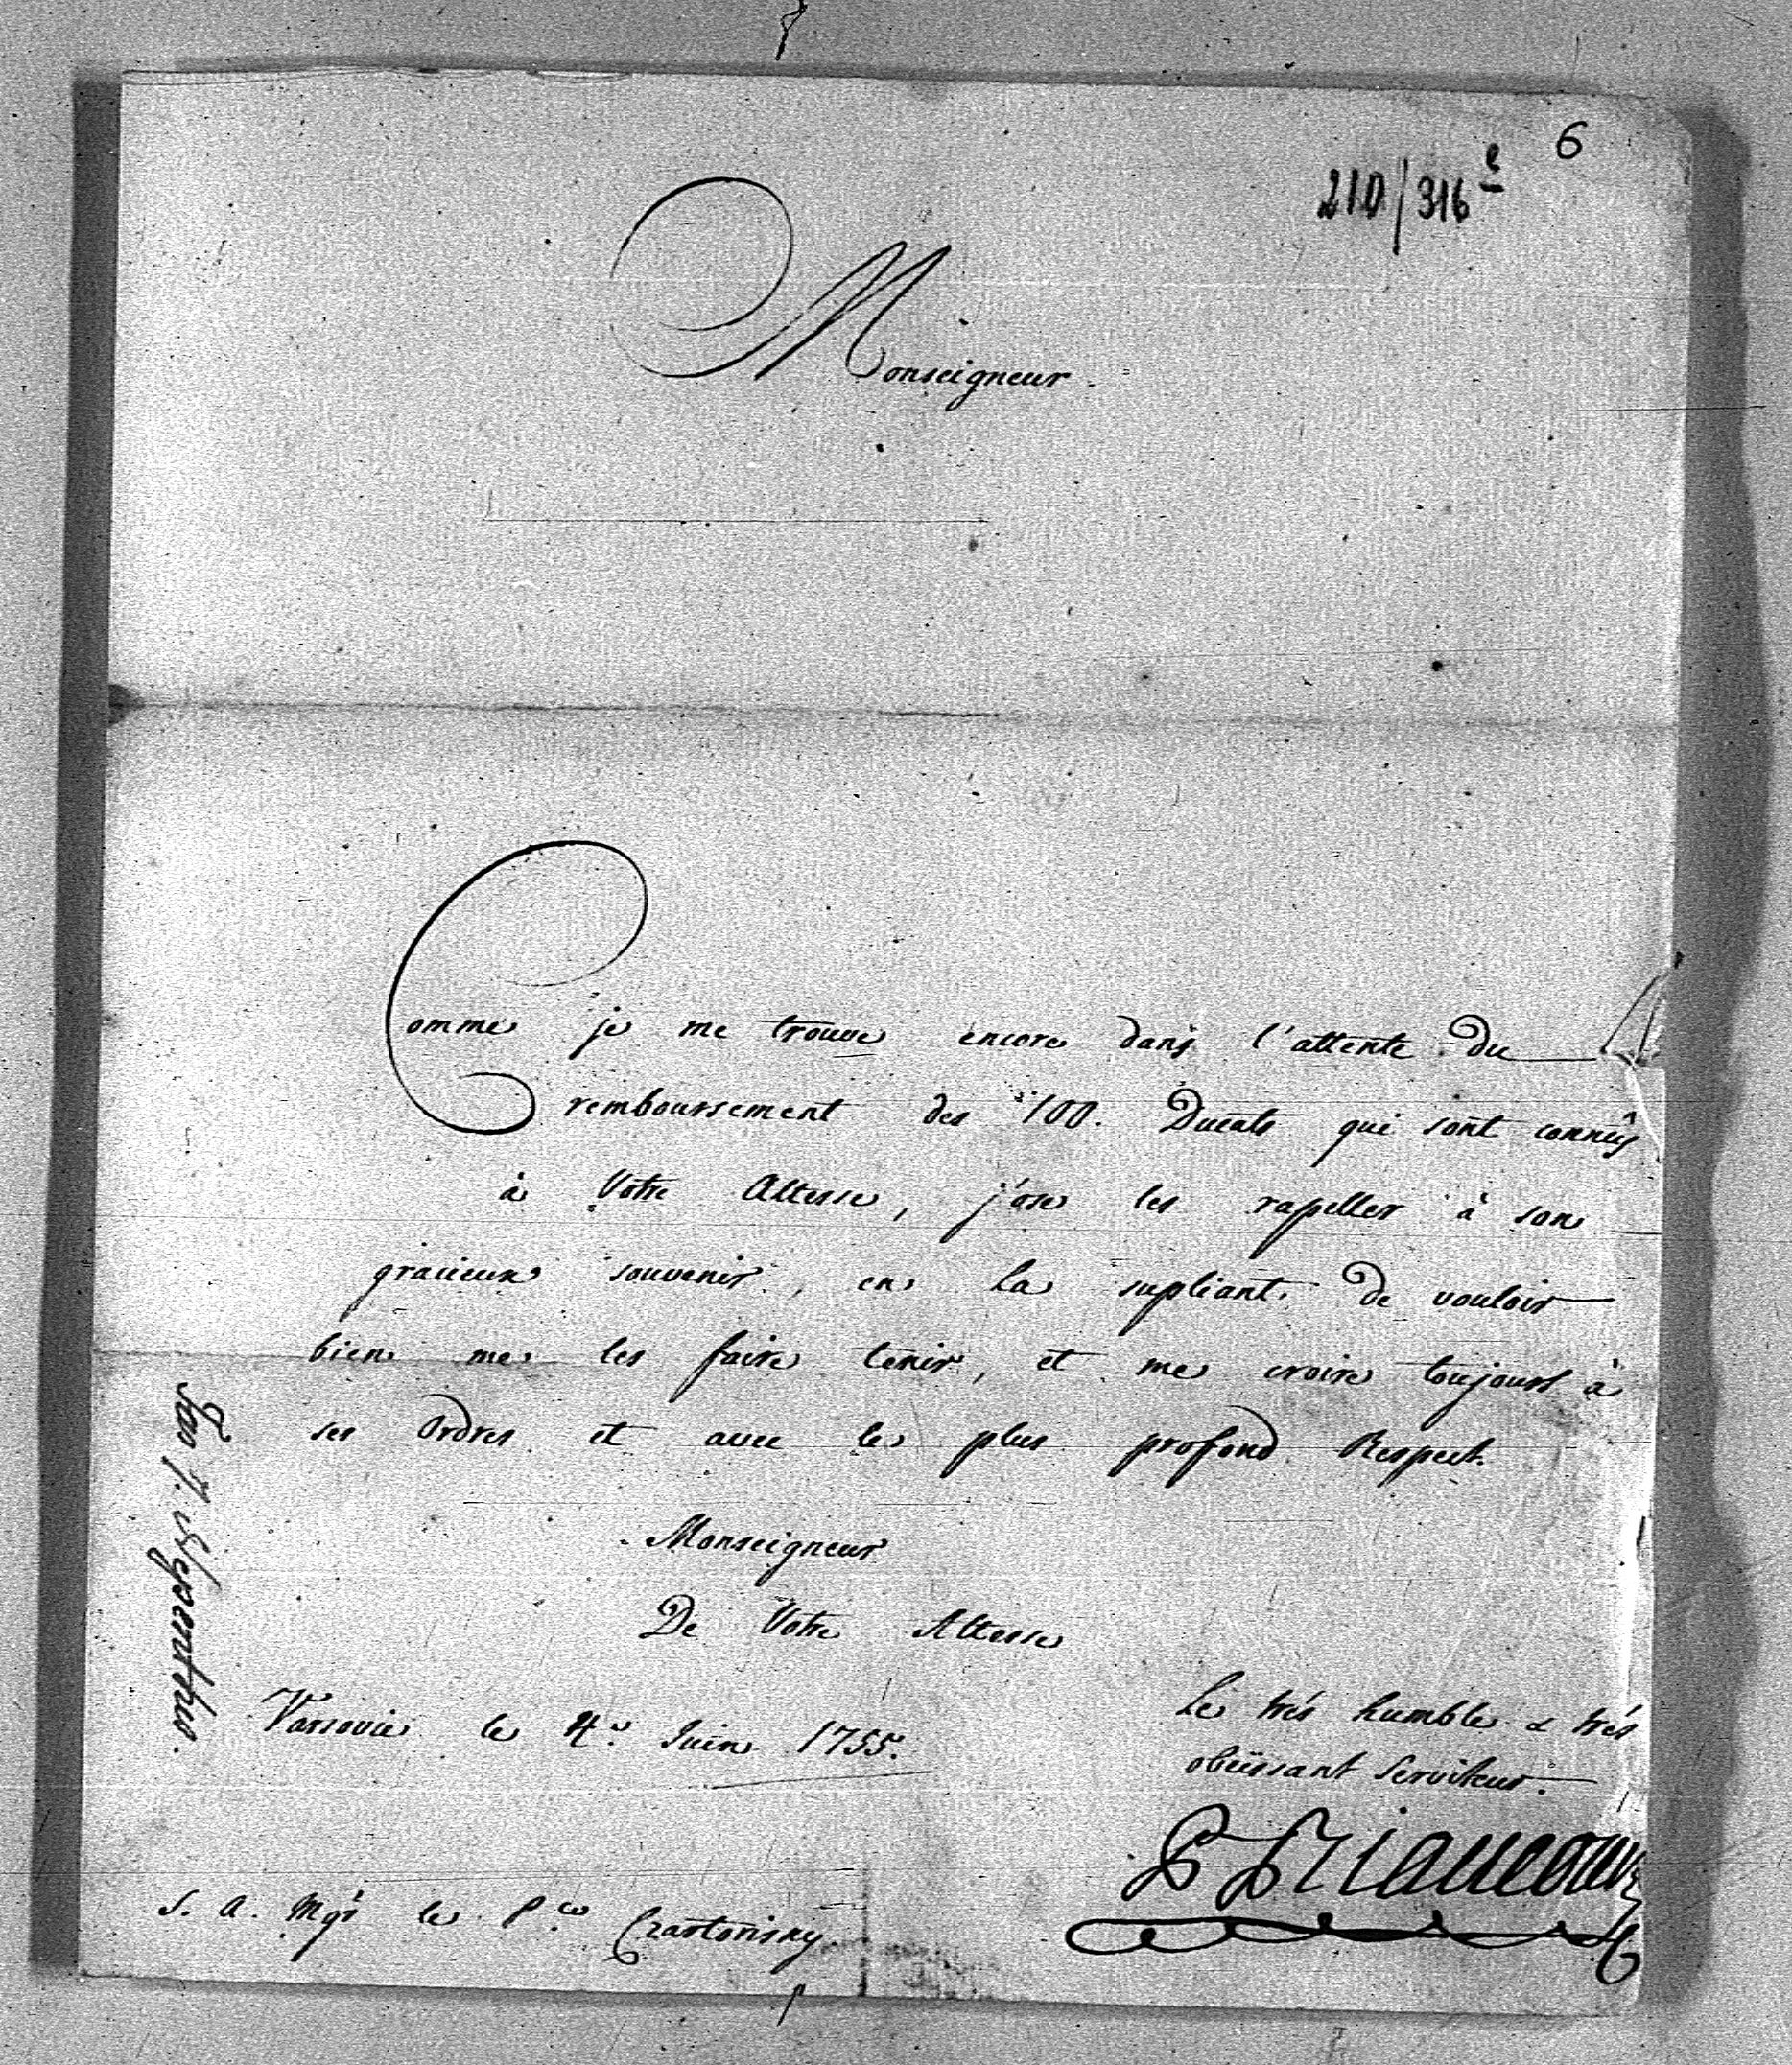 6
210/316
Monseigneur.
Comme je me trouve encore dans l'attente du
remboursement des 100. Ducats qui sont connûs
à Votre Altesse, j'ose les rapeller à son
gracieux souvenir, en La supliant de vouloir
bien me les faire tenir, et me croire toujours à
ses Ordres et avec le plus profond Respect.
Monseigneur
De Votre Altesse
Le trés humble & trés
obeïssant Serviteur.
Varsovie le 4.e Juin 1755.
P. Riaucour
S. A. Mgr le P.ce Czartorisky